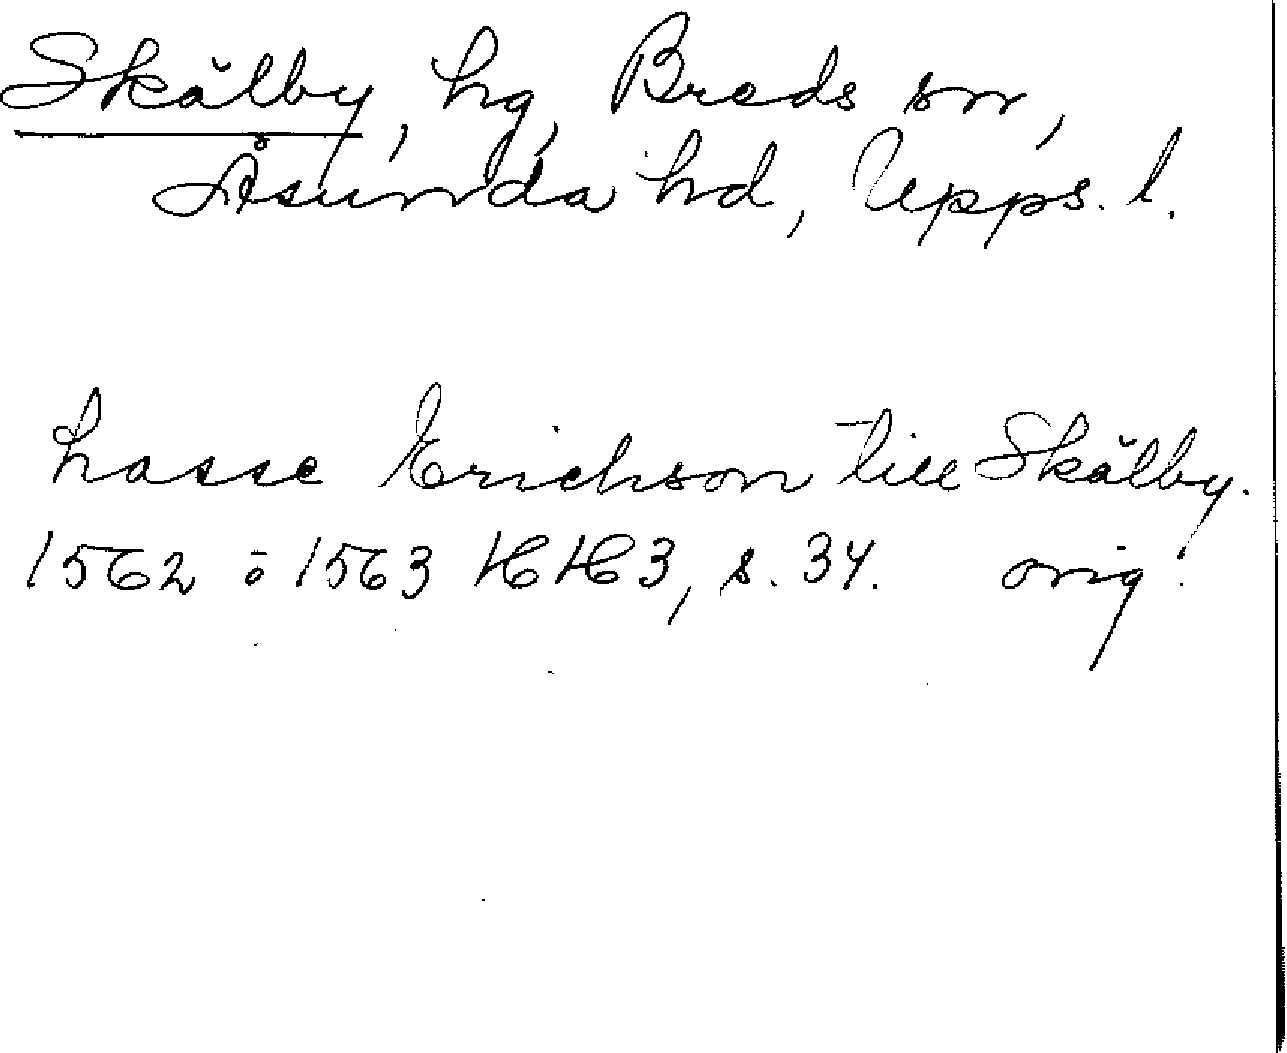 Skälby, hg, Breds sn,
Åsunda hd, Upps. l.
Lasse Erichson till Skålby.
1562 ō 1563 HH3, s. 34. orig.